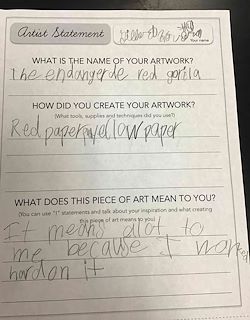 Artist Statement
Your name
WHAT IS THE NAME OF YOUR ARTWORK?
The endangerde red gorila
HOW DID YOU CREATE YOUR ARTWORK?
(What tools, supplies and techniques did you use?)
Red paper yellow paper
WHAT DOES THIS PIECE OF ART MEAN TO YOU?
(You can use "I" statements and talk about your inspiration and what creating
this piece of art means to you)
It means alot to
me because I worked
hard on it